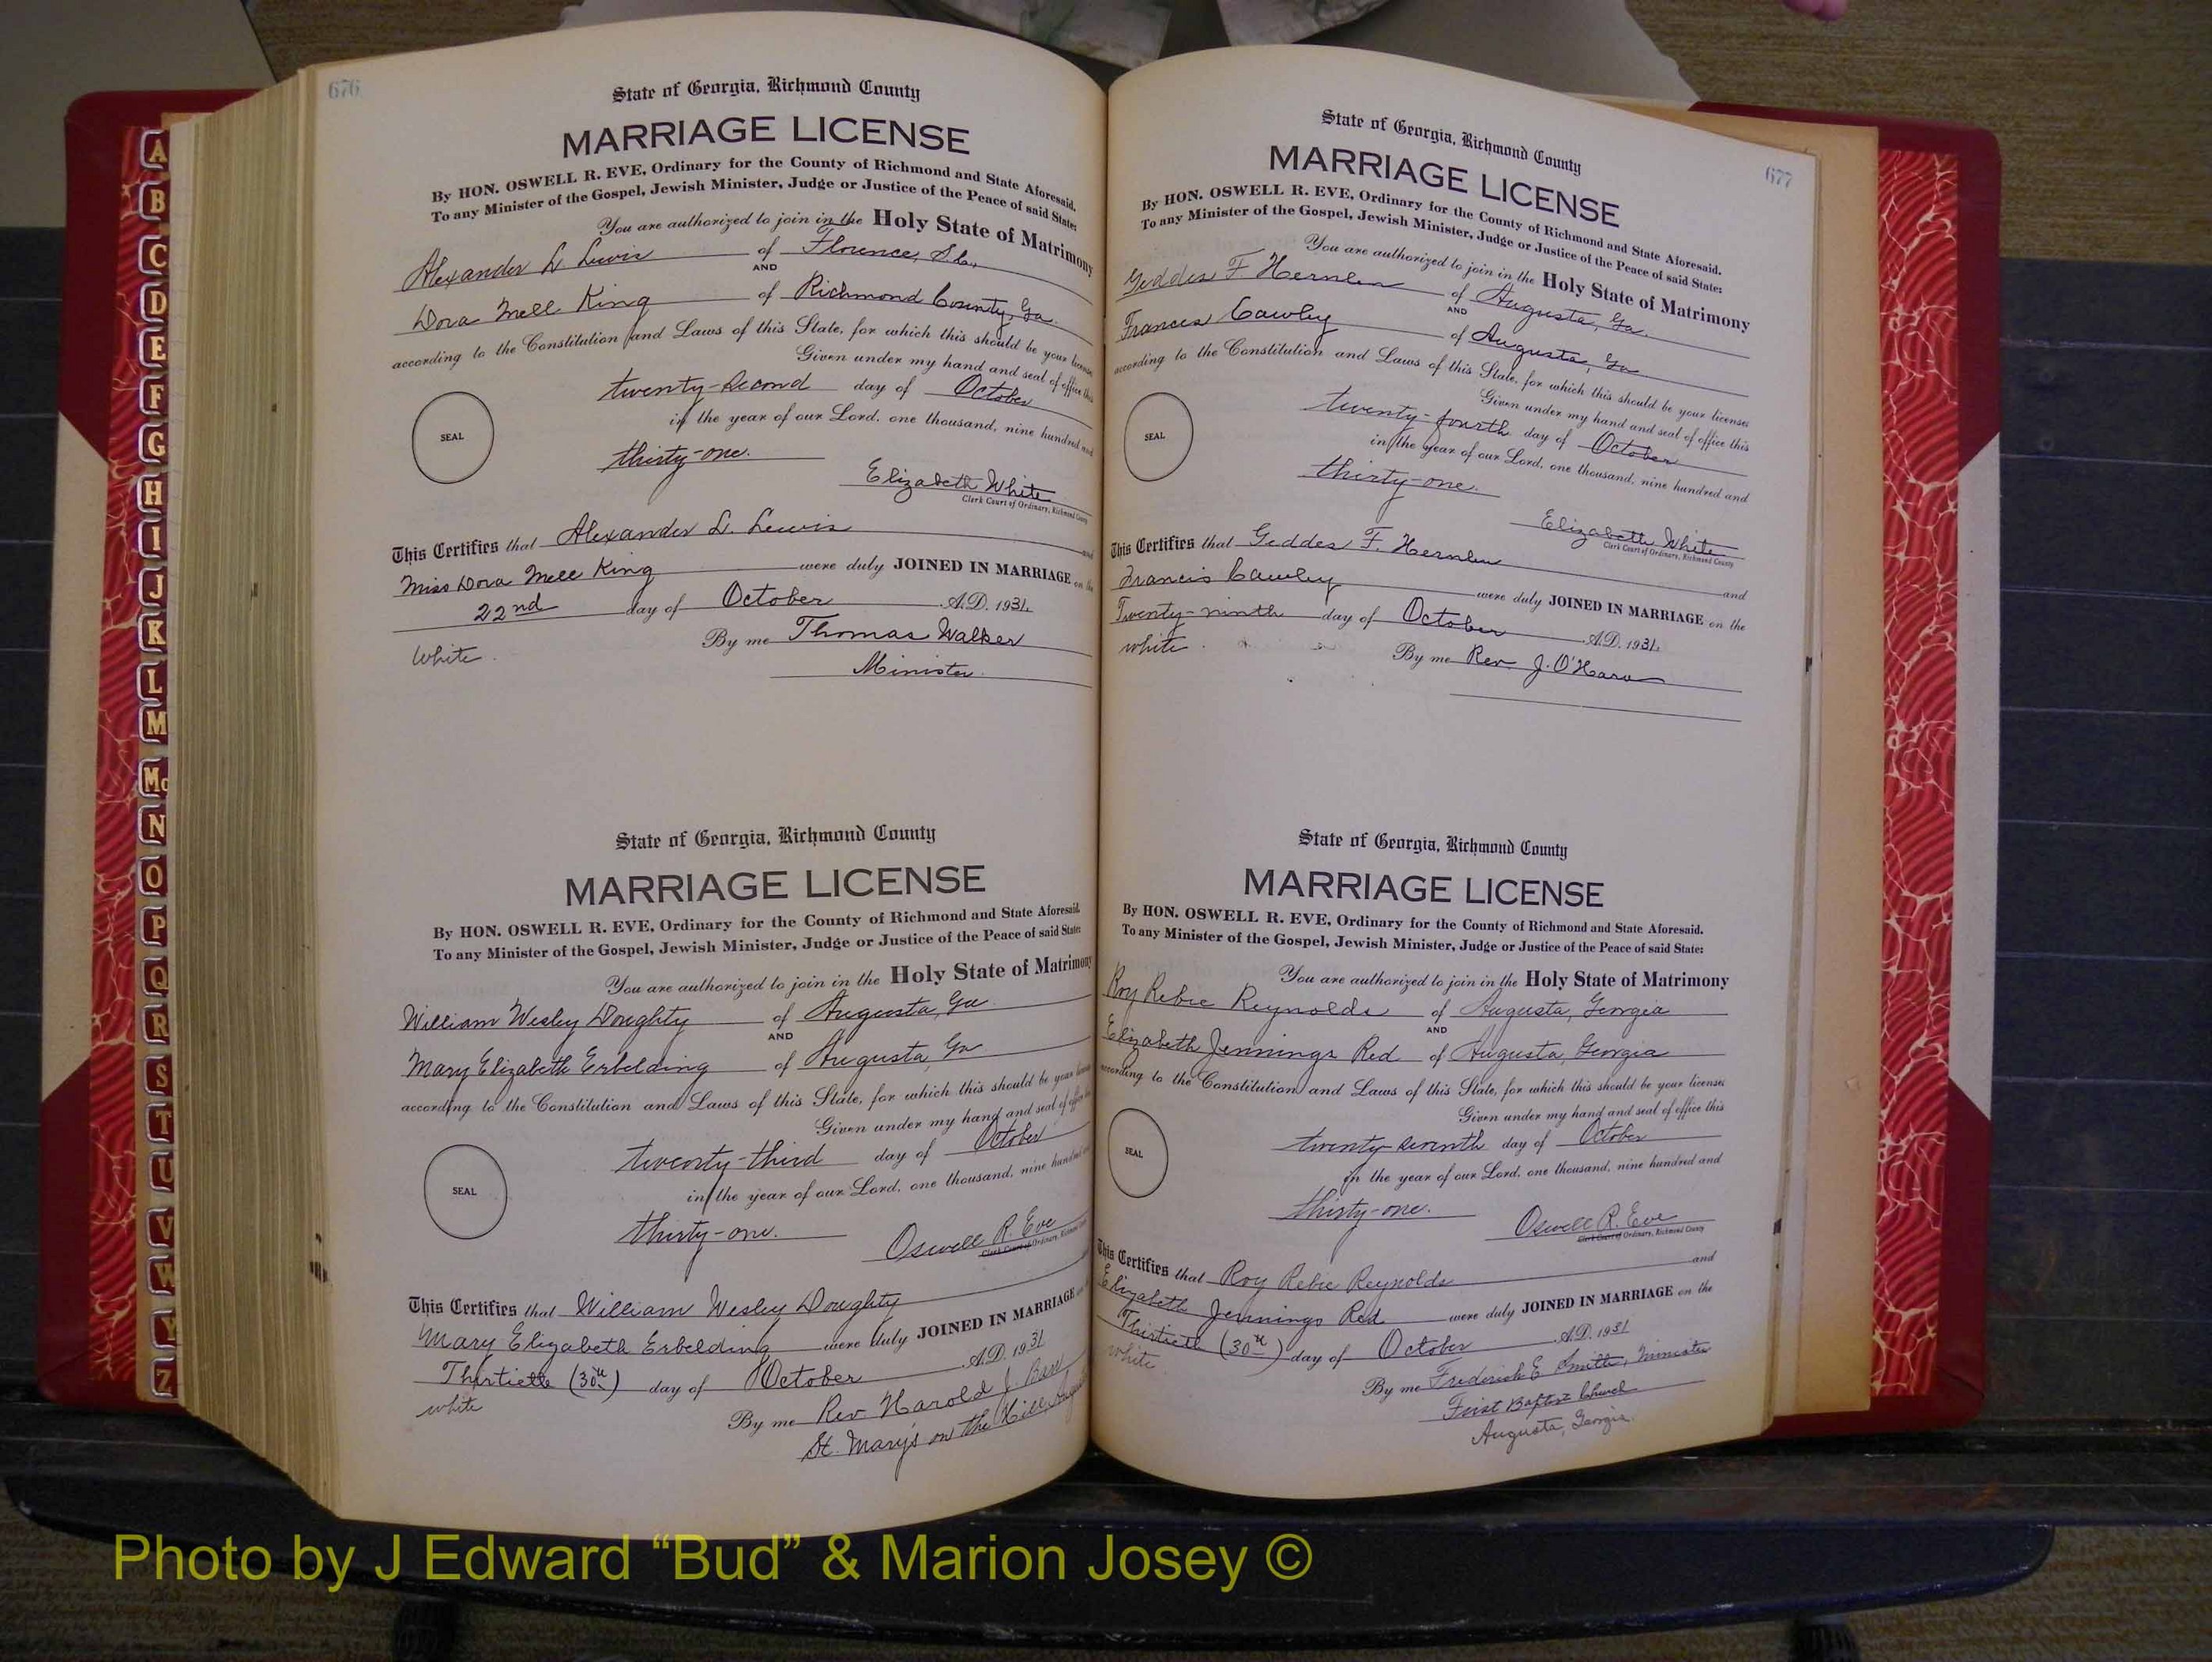 676
State of Georgia, Richmond County
MARRIAGE LICENSE
By HON. OSWELL R. EVE, Ordinary for the County of Richmond and State Aforesaid.
To any Minister of the Gospel, Jewish Minister, Judge or Justice of the Peace of said State:
You are authorized to join in the Holy State of Matrimony
Alexander L. Lewis of Florence, S.C.,
AND
Dora Mell King of Richmond County, Ga.
according to the Constitution and Laws of this State, for which this should be your license
Given under my hand and seal of office this
twenty-second day of October
in the year of our Lord, one thousand, nine hundred and
SEAL
thirty-one.
Elizabeth White
Clerk Court of Ordinary, Richmond County
This Certifies that Alexander L. Lewis and
Miss Dora Mell King were duly JOINED IN MARRIAGE on the
22nd day of October A.D. 1931.
White. By me Thomas Walker
Minister.
State of Georgia, Richmond County
MARRIAGE LICENSE
By HON. OSWELL R. EVE, Ordinary for the County of Richmond and State Aforesaid.
To any Minister of the Gospel, Jewish Minister, Judge or Justice of the Peace of said State:
You are authorized to join in the Holy State of Matrimony
William Wesley Doughty of Augusta, Ga.
AND
Mary Elizabeth Erbelding of Augusta, Ga
according to the Constitution and Laws of this State, for which this should be your license
Given under my hand and seal of office
twenty-third day of October
SEAL
in the year of our Lord, one thousand, nine hundred
thirty-one.
Oswell R. Eve
Clerk Court of Ordinary, Richmond
This Certifies that William Wesley Doughty
Mary Elizabeth Erbelding were duly JOINED IN MARRIAGE
Thirtieth (30th) day of October A.D. 1931
white By me Rev. Harold J. Barr
St. Mary's on the Hill,
677
State of Georgia, Richmond County
MARRIAGE LICENSE
By HON. OSWELL R. EVE, Ordinary for the County of Richmond and State Aforesaid.
To any Minister of the Gospel, Jewish Minister, Judge or Justice of the Peace of said State:
You are authorized to join in the Holy State of Matrimony
Geddes F Hernlen of Augusta, Ga.
AND
Frances Cawley of Augusta, Ga
according to the Constitution and Laws of this State, for which this should be your license
Given under my hand and seal of office this
twenty-fourth day of October
SEAL
in the year of our Lord, one thousand, nine hundred and
thirty-one.
Elizabeth White
Clerk Court of Ordinary, Richmond County
This Certifies that Geddes F. Hernlen and
Francis Cawley were duly JOINED IN MARRIAGE on the
Twenty-ninth day of October A.D. 1931.
white. By me Rev J. O'Hara
State of Georgia, Richmond County
MARRIAGE LICENSE
By HON. OSWELL R. EVE, Ordinary for the County of Richmond and State Aforesaid.
To any Minister of the Gospel, Jewish Minister, Judge or Justice of the Peace of said State:
You are authorized to join in the Holy State of Matrimony
Roy Rebie Reynolds of Augusta, Georgia
AND
Elizabeth Jennings Red of Augusta, Georgia
according to the Constitution and Laws of this State, for which this should be your license
Given under my hand and seal of office this
twenty-seventh day of October
SEAL
in the year of our Lord, one thousand, nine hundred and
thirty-one.
Oswell R. Eve
Clerk Court of Ordinary, Richmond County
This Certifies that Roy Rebie Reynolds and
Elizabeth Jennings Red were duly JOINED IN MARRIAGE on the
Thirtieth (30th) day of October A.D. 1931
white By me Frederick E. Smith, Minister
First Baptist Church
Augusta, Georgia.
A
B
C
D
E
F
G
H
I
J
K
L
M
Mc
N
O
P
Q
R
S
T
U
V
W
Y
Z
Photo by J Edward “Bud” & Marion Josey ©